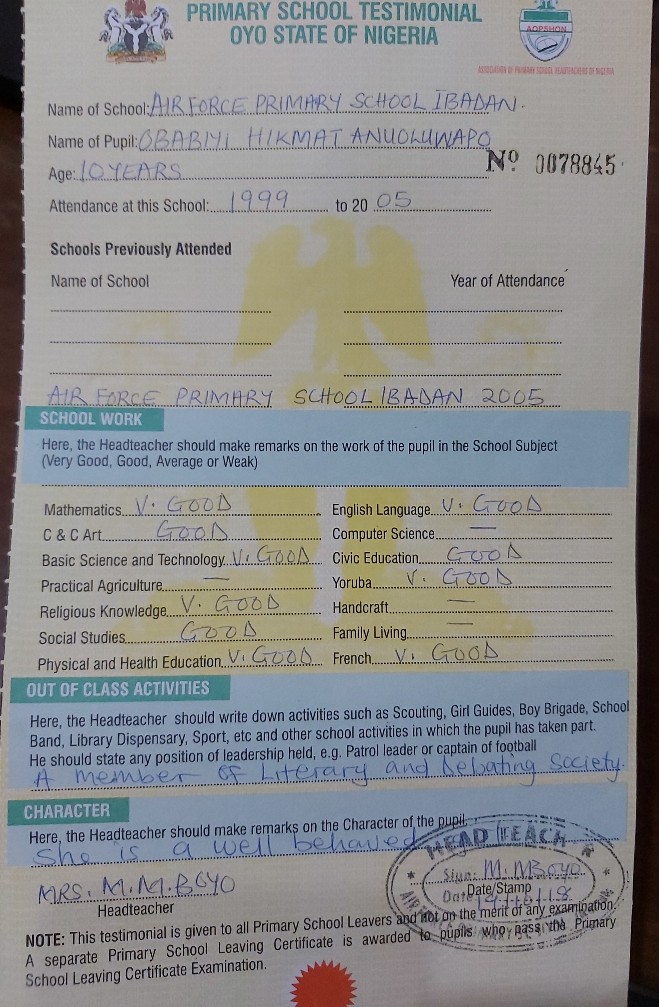 PRIMARY SCHOOL TESTIMONIAL
OYO STATE OF NIGERIA
AOPSHON
ASSOCIATION OF PRIMARY SCHOOL HEADTEACHERS OF NIGERIA
Name of School: AIRFORCE PRIMARY SCHOOL IBADAN.
Name of Pupil: OBABIYI HIKMAT ANUOLUWAPO
Age: 10 YEARS
No 0078845
Attendance at this School: 1999 to 20 05
Schools Previously Attended
Name of School Year of Attendance
AIR FORCE PRIMARY SCHOOL IBADAN 2005
SCHOOL WORK
Here, the Headteacher should make remarks on the work of the pupil in the School Subject
(Very Good, Good, Average or Weak)
Mathematics V. GOOD English Language V. GOOD
C & C Art GOOD Computer Science —
Basic Science and Technology V. GOOD Civic Education GOOD
Practical Agriculture — Yoruba V. GOOD
Religious Knowledge V. GOOD Handcraft —
Social Studies GOOD Family Living —
Physical and Health Education V. GOOD French V. GOOD
OUT OF CLASS ACTIVITIES
Here, the Headteacher should write down activities such as Scouting, Girl Guides, Boy Brigade, School
Band, Library Dispensary, Sport, etc and other school activities in which the pupil has taken part.
He should state any position of leadership held, e.g. Patrol leader or captain of football
A member of Literary and Debating Society.
CHARACTER
Here, the Headteacher should make remarks on the Character of the pupil
She is a well behaved
HEAD TEACHER
Sign: M. MBOYO
Date/Stamp
Date
MRS. M.M.BOYO
Headteacher
NOTE: This testimonial is given to all Primary School Leavers and not on the merit of any examination.
A separate Primary School Leaving Certificate is awarded to pupils who pass the Primary
School Leaving Certificate Examination.